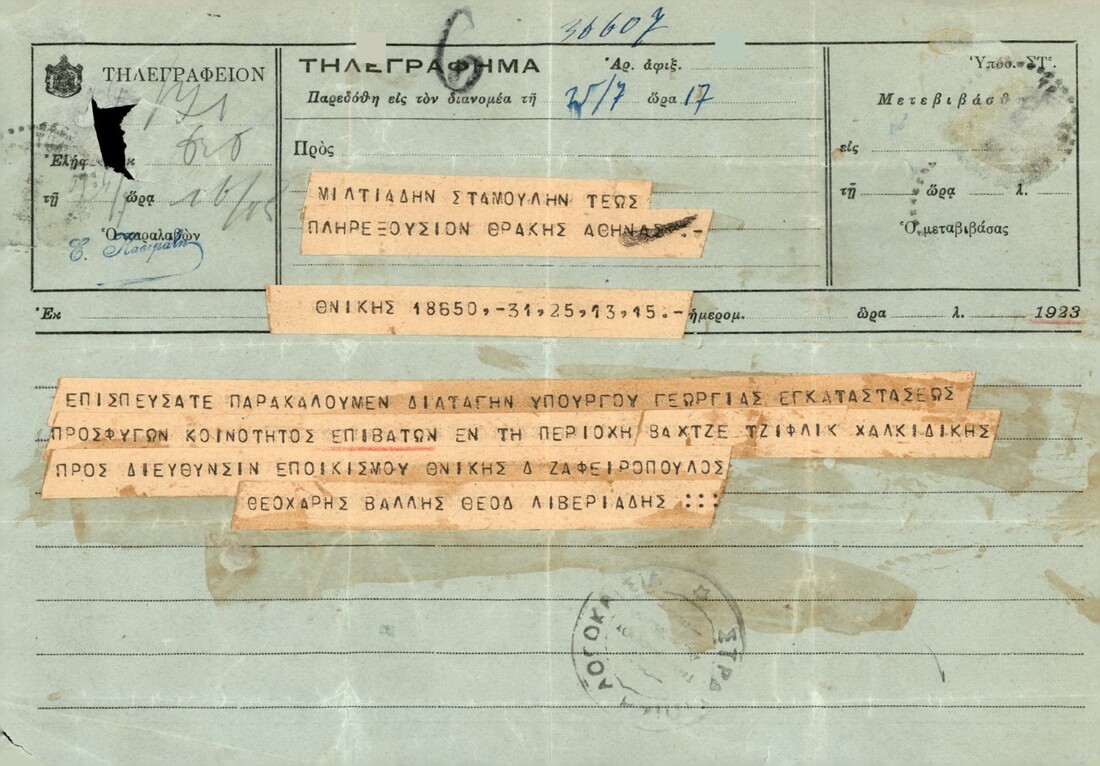 30607
6
ΤΗΛΕΓΡΑΦΕΙΟΝ
ΤΗΛΕΓΡΑΦΗΜΑ
Ἀρ. ἀφιξ.
Παρεδόθη εἰς τὸν διανομέα τῇ 25/7 ὥρα 17
Ὑπόδ. ΣΤ'.
Μετεβιβάσθ
Ἐλήφ
τῇ ὥρα
Ὁ παραλαβὼν
Πρὸς
ΜΙΛΤΙΑΔΗΝ ΣΤΑΜΟΥΛΗΝ ΤΕΩΣ
ΠΛΗΡΕΞΟΥΣΙΟΝ ΘΡΑΚΗΣ ΑΘΗΝΑΣ :-
εἰς
τῇ ὥρα λ.
Ὁ μεταβιβάσας
Ἐκ ΘΝΙΚΗΣ 18650,-31,25,13,15.- ἡμερομ. ὥρα λ. 1923
ΕΠΙΣΠΕΥΣΑΤΕ ΠΑΡΑΚΑΛΟΥΜΕΝ ΔΙΑΤΑΓΗΝ ΥΠΟΥΡΓΟΥ ΓΕΩΡΓΙΑΣ ΕΓΚΑΤΑΣΤΑΣΕΩΣ
ΠΡΟΣΦΥΓΩΝ ΚΟΙΝΟΤΗΤΟΣ ΕΠΙΒΑΤΩΝ ΕΝ ΤΗ ΠΕΡΙΟΧΗ ΒΑΧΤΖΕ ΤΖΙΦΛΙΚ ΧΑΛΚΙΔΙΚΗΣ
ΠΡΟΣ ΔΙΕΥΘΥΝΣΙΝ ΕΠΟΙΚΙΣΜΟΥ ΘΝΙΚΗΣ Δ ΖΑΦΕΙΡΟΠΟΥΛΟΣ
ΘΕΟΧΑΡΗΣ ΒΑΛΛΗΣ ΘΕΟΔ ΛΙΒΕΡΙΑΔΗΣ :::